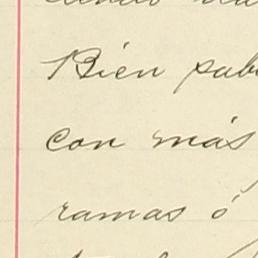 Bien sab
con más
ramas ó